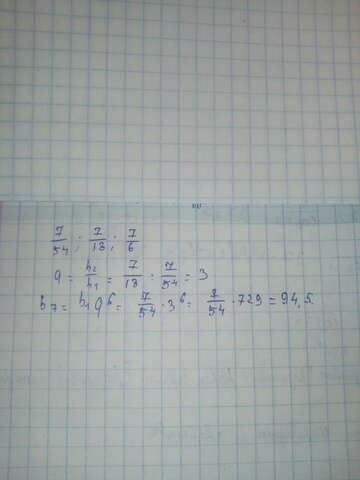 7/54 ; 7/18 ; 7/6
q = b₂/b₁ = 7/18 : 7/54 = 3
b₇ = b₁q⁶ = 7/54 · 3⁶ = 7/54 · 729 = 94,5.